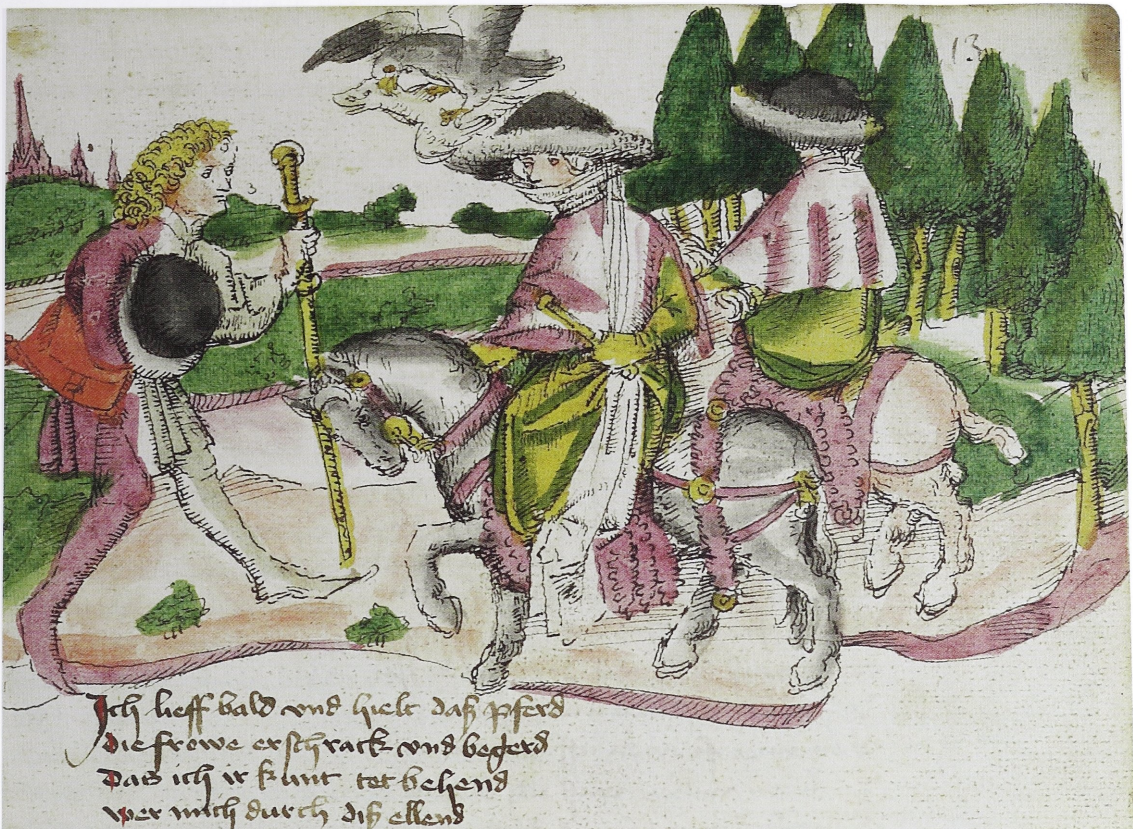 13
Ich lieff bald vnd hielt daß pferd
die frowe erschrack vnd begerd
Das ich ir kunt tet behend
wer mich durch diß ellend